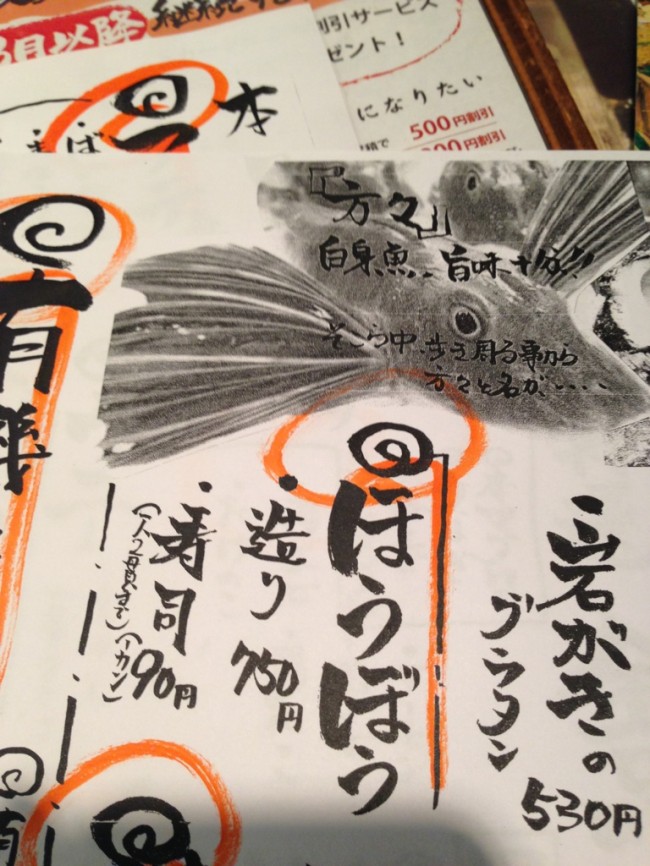 月以降
割引サービス
ゼント！
になりたい
500円割引
円割引
本
『方々』
白身魚‥旨味十分!!
そこら中、歩き周る事から
方々と名が、‥‥
岩がきの
グラタン
530円
ほうぼう
・造り
750円
・寿司
(一人2貫まで)(一カン)
90円
有